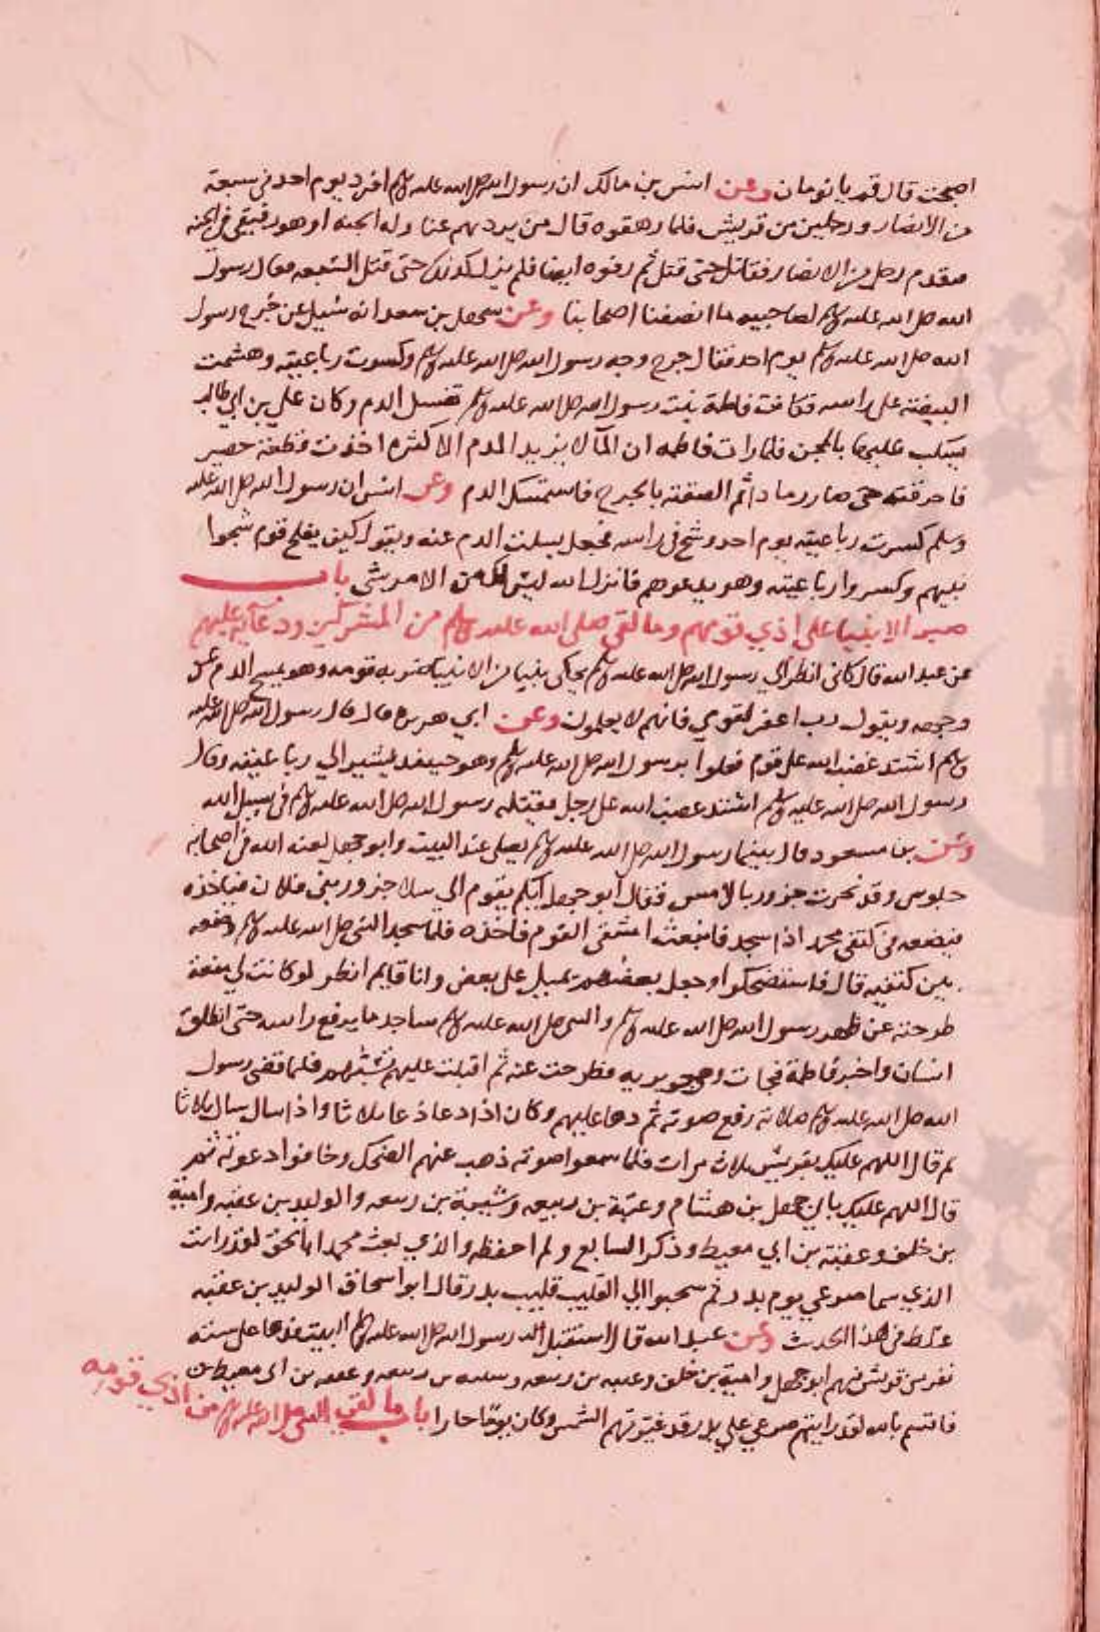 اصبحت قال قم يا نومان وعن انس بن مالك ان رسول الله صلى الله عليه وسلم افرد يوم احد في سبعة
من الانصار ورجلين من قريش فلما رهقوه قال من يردهم عنا وله الجنه او هو رفيقي في الجنه
فتقدم رجل من الانصار فقاتل حتى قتل ثم رهقوه ايضا فلم يزل كذلك حتى قتل السبعه فقال رسول
الله صلى الله عليه وسلم لصاحبيه ما انصفنا اصحابنا وعن سهل بن سعد انه سُيل عن جُرح رسول
الله صلى الله عليه وسلم يوم احد فقال جرح وجه رسول الله صلى الله عليه وسلم وكسرت رباعيته وهشمت
البيضة على راسه فكانت فاطمة بنت رسول الله صلى الله عليه وسلم تغسل الدم وكان علي بن ابي طالب
يسكب عليها بالمجن فلما رات فاطمه ان الما لا يزيد الدم الا كثره اخذت قطعة حصير
فاحرقته حتى صار رمادا ثم الصقته بالجرح فاستمسك الدم وعن انس ان رسول الله صلى الله عليه
وسلم كسرت رباعيته يوم احد وشج في راسه فجعل يسلت الدم عنه ويقول كيف يفلح قوم شجوا
نبيهم وكسروا رباعيته وهو يدعوهم فانزل الله ليس لك من الامر شي باب
صبر الانبيا على اذي قومهم وما لقي صلى الله عليه وسلم من المشركين ودعآيه عليهم
عن عبد الله قال كاني انظر الي رسول الله صلى الله عليه وسلم يحكي نبيا من الانبيا ضربه قومه وهو يمسح الدم عن
وجهه ويقول رب اغفر لقومي فانهم لا يعلمون وعن ابي هريره قال قال رسول الله صلى الله عليه
وسلم اشتد غضب الله على قوم فعلوا برسول الله صلى الله عليه وسلم وهو حينيذ يشير الي رباعيته وقال
رسول الله صلى الله عليه وسلم اشتد غضب الله على رجل يقتله رسول الله صلى الله عليه وسلم في سبيل الله
وعن بن مسعود قال بينما رسول الله صلى الله عليه وسلم يصلي عند البيت وابو جهل لعنه الله في اصحابه
جلوس وقد نحرت جزور بالامس فقال ابو جهل ايكم يقوم الي سلا جزور بني فلان فياخذه
فيضعه في كتفي محمد اذا سجد فانبعث اشقى القوم فاخذه فلما سجد النبي صلى الله عليه وسلم وضعه
بين كتفيه قال فاستضحكوا وجعل بعضهم يميل على بعض وانا قايم انظر لو كانت لي منعة
طرحته عن ظهر رسول الله صلى الله عليه وسلم والنبي صلى الله عليه وسلم ساجد ما يرفع راسه حتى انطلق
انسان واخبر فاطمة فجات وهي جويريه فطرحته عنه ثم اقبلت عليهم تشتمهم فلما قضى رسول
الله صلى الله عليه وسلم صلاته رفع صوته ثم دعا عليهم وكان اذا دعا دعا ثلاثا واذا سال سال ثلاثا
ثم قال اللهم عليك بقريش ثلاث مرات فلما سمعوا صوته ذهب عنهم الضحك وخافوا دعوته ثم
قال اللهم عليك بابي جهل بن هشام وعتبة بن ربيعه وشيبة بن ربيعه والوليد بن عقبه وامية
بن خلف وعقبة بن ابي معيط وذكر السابع ولم احفظه والذي بعث محمدا بالحق لقد رايت
الذي سما صرعي يوم بدر ثم سحبوا الي القليب قليب بدر قال ابو اسحاق الوليد بن عقبه
غلط في هذا الحديث وعن عبد الله قال استقبل رسول الله صلى الله عليه وسلم البيت فدعا على سته
نفر من قريش فيهم ابو جهل وامية بن خلف وعتبه بن ربيعه وشيبه بن ربيعه وعقبه بن ابي معيط
فاقسم بالله لقد رايتهم صرعي علي بدر قد غيرتهم الشمس وكان يومًا حارا باب ما لقي النبي صلى الله عليه وسلم من اذي قومه